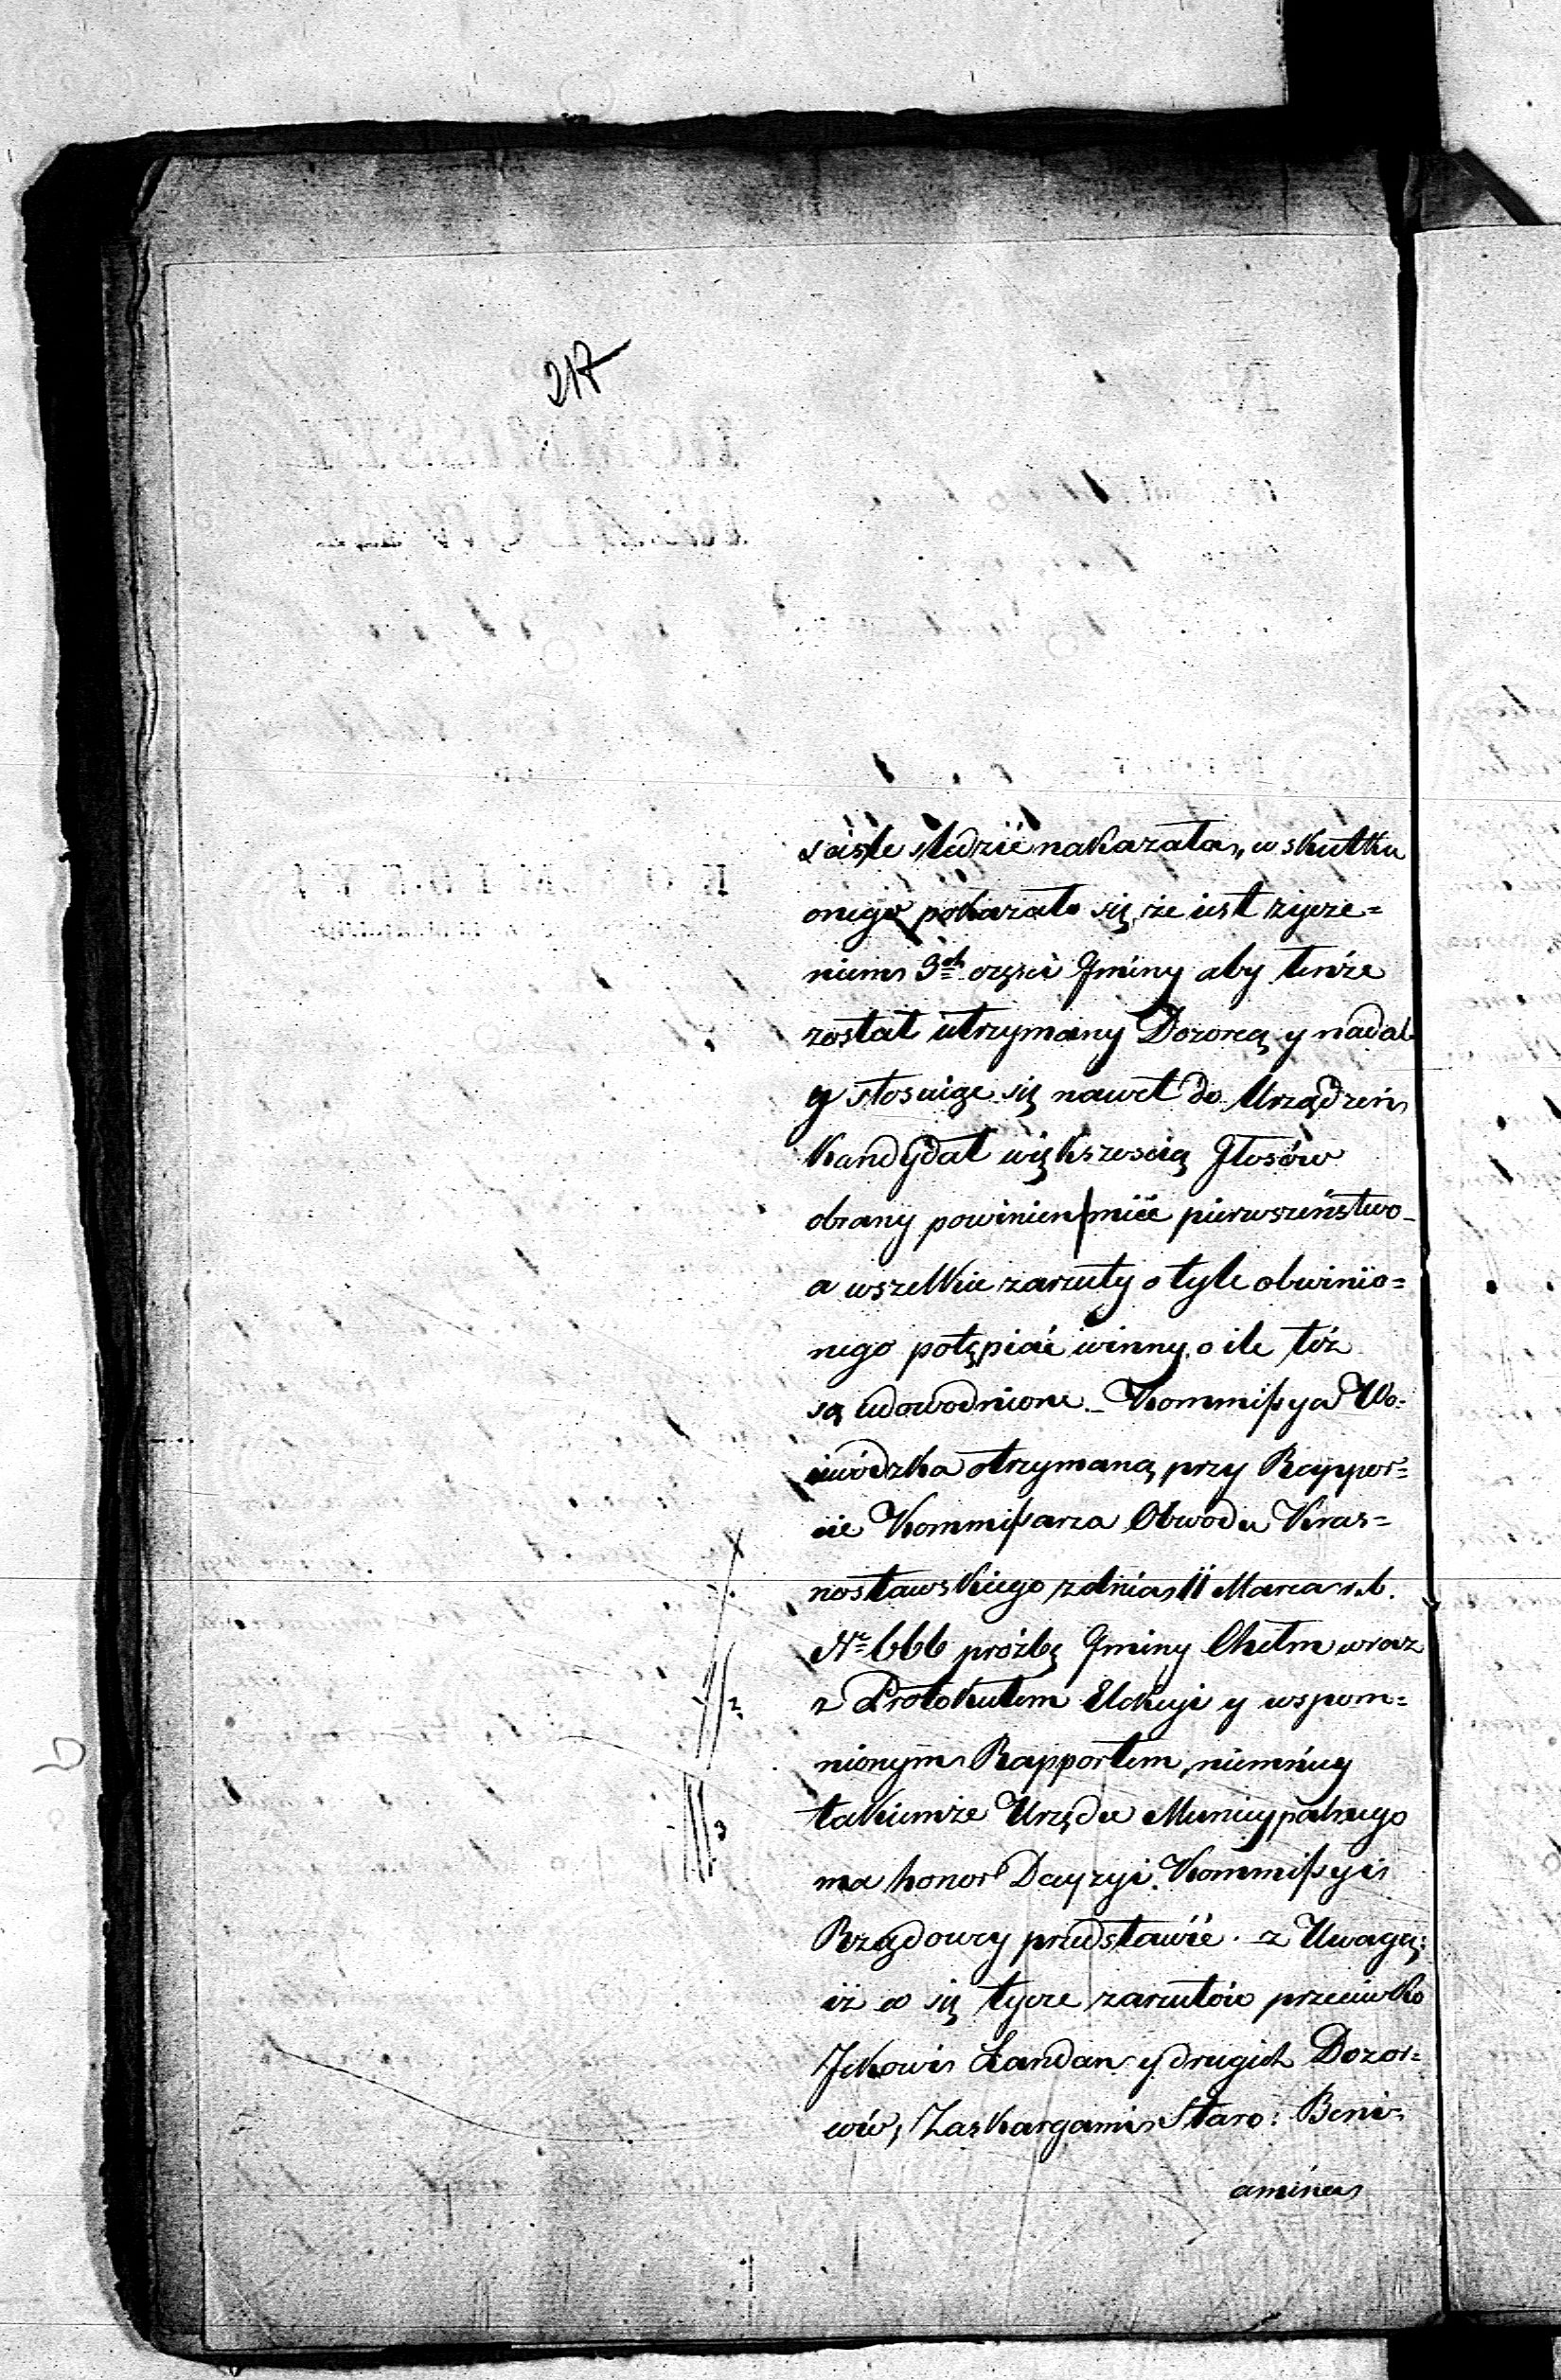 217
ściśle sledzić nakazała, w skutku
onego pokazało się, że iest życze=
niem 3ch części Gminy aby tenże
został utrzymany Dozorcą y nadal
y stosuiąc się nawet do Urządzeń
Kandydat większoscią Głosów
obrany powinien mieć pierwszeństwo
a wszelkie zarzuty o tyle obwinio=
nego potępiać winny, o ile też
są udowodnione. Kommissya Wo=
iewódzka otrzymaną przy Rappor=
cie Kommissarza Obwodu Kras=
nostawskiego z dnia 11 Marca r. b.
Nr 666 prożbę Gminy Chełm wraz
z Protokułem Elekcyi y wspom=
nionym Rapportem, niemniey
takiemże Urzędu Municypalnego
ma honor Decyzyi Kommissyi
Rządowey przedstawić. z Uwagą:
iż co się tycze zarzutów przeciwko
Ickowi Landau y drugich Dozor=
ców, Zaskargami Staro: Beni=
amina
2
3